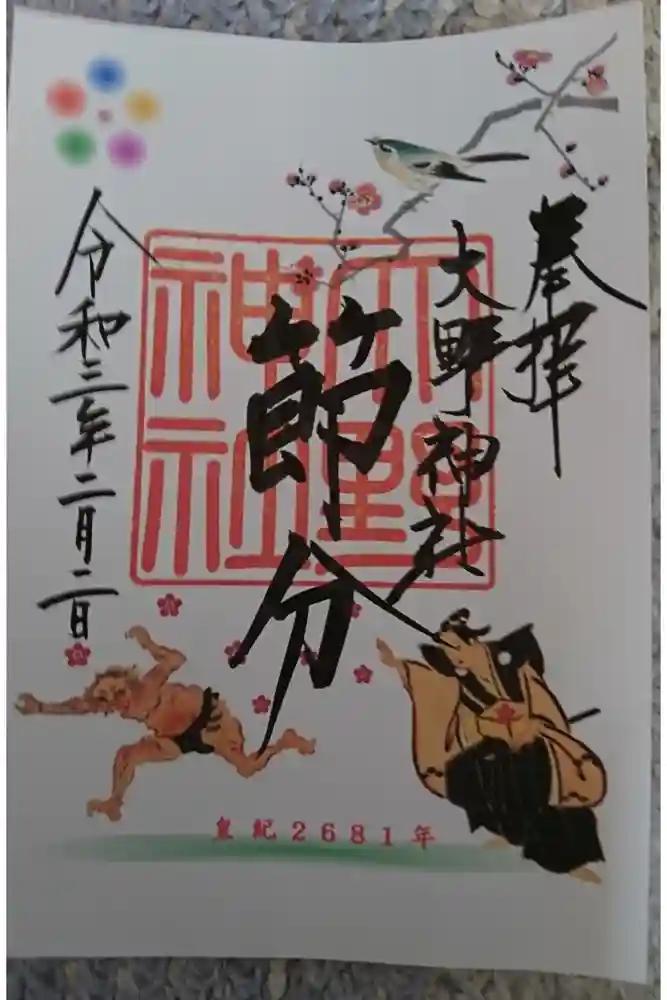 奉拝
大野神社
節分
令和三年二月二日
大野神社
皇紀2681年